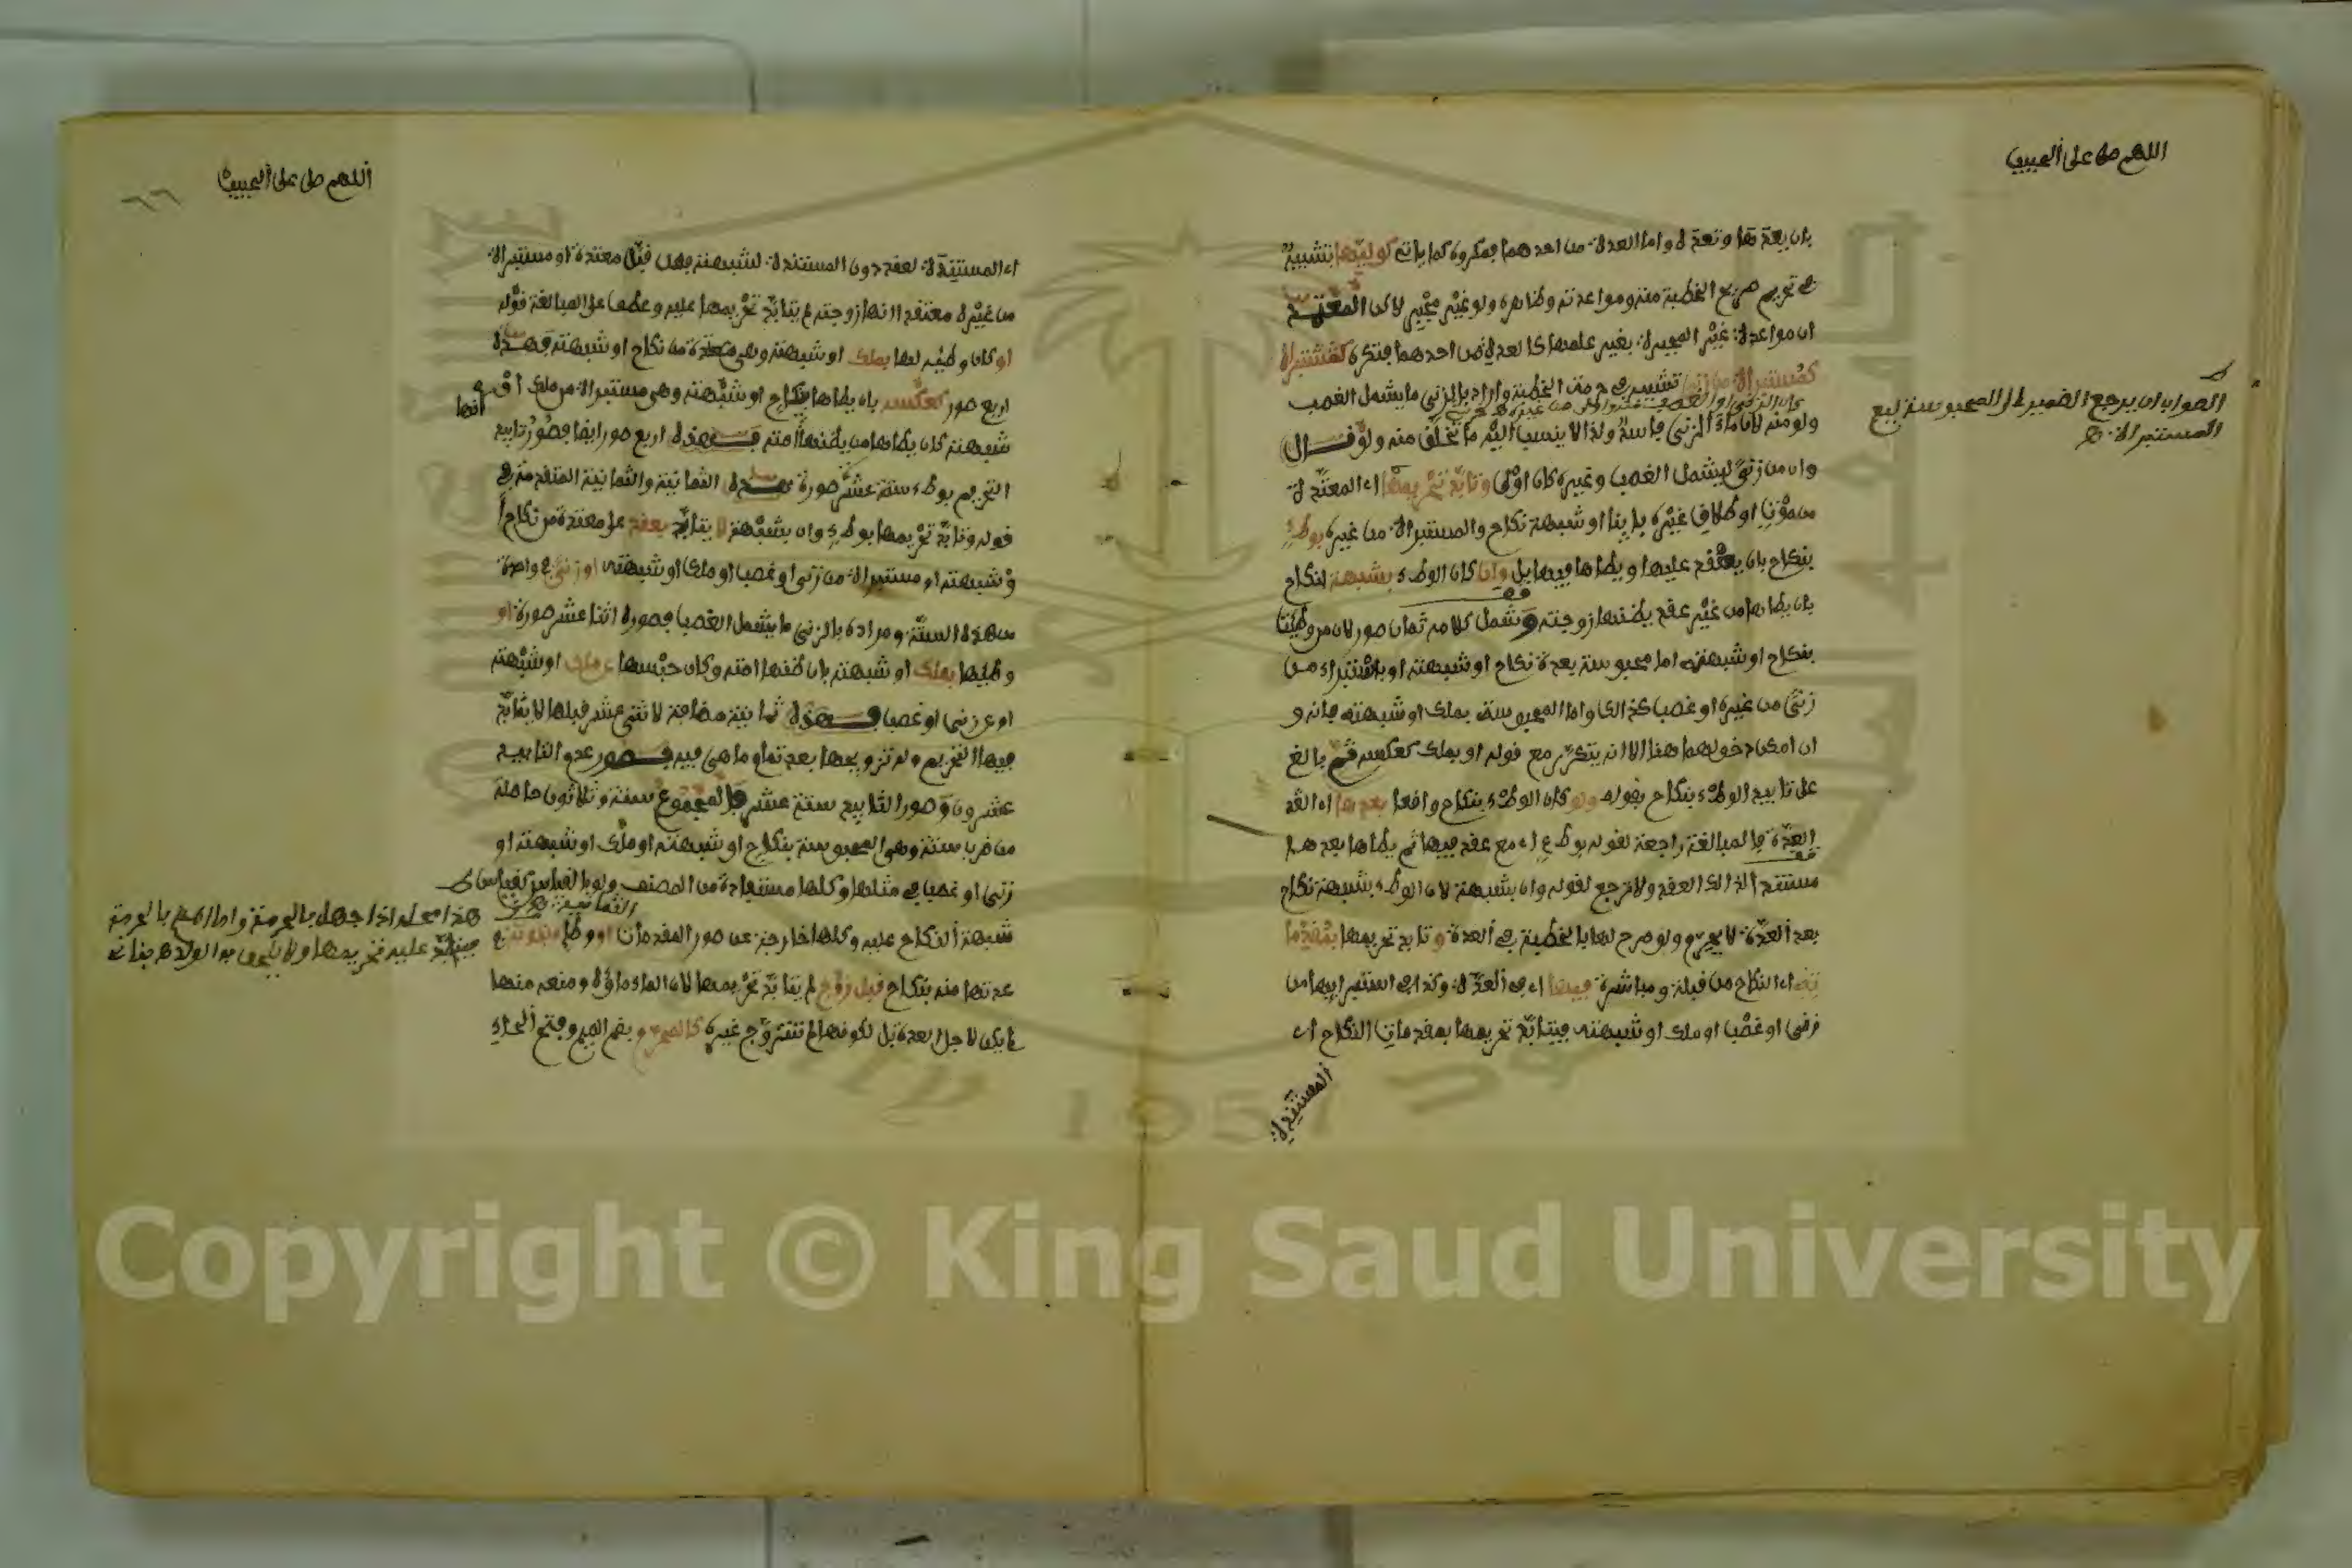 اللهم صل على الحبيب
بان يعدها وتعده واما العدة من احدهما فمكروه كما ياتي كوليها تشبيه
في تحريم صريح الخطبة منه ومواعدته وظاهره ولو غير مجبر لاكن المعتمد
ان مواعدة غير المجبرة بغير علمها كالعدة من احدهما فتكره كمستبراة
كمستبراة من زنى تشبيه في حرمة الخطبة واراد بالزنى ما يشمل الغصب
ولو منه لان ماء الزنى فاسد ولذا لا ينسب اليه ما تخلق منه ولو قال
وان من زنى ليشمل الغصب وغيره كان اولى وتابد تحريمها اي المعتدة
من موت او طلاق غيره باينا او شبهة نكاح والمستبراة من غيره بوطء
بنكاح بان يعقد عليها ويطاها فيها بل وان كان الوطء بشبهة لنكاح
بان يطاها من غير عقد يظنها زوجته وشمل كلامه ثمان صور لان من وطئت
بنكاح او شبهته اما محبوسة بعدة نكاح او شبهته او باستبراء من
زنى من غيره او غصب كذلك واما المحبوسة بملك او شبهته فانه و
ان امكن دخولهما هنا الا انه يتكرر مع قوله او بملك كعكسه ثم بالغ
على تابيد الوطء بنكاح بقوله ولو كان الوطء بنكاح واقعا بعدها اي
العدة فالمبالغة راجعة لقوله بوطء اي مع عقد فيها ثم يطاها بعدها
مستندا لذلك العقد ولا ترجع لقوله وان بشبهة لان الوطء بشبهة نكاح
بعد العدة لا يحرم ولو صرح لها بالخطبة في العدة وتابد تحريمها بمقدما
ته اي النكاح من قبلة ومباشرة فيها اي في العدة وكذا في استبرائها من
زنى او غصب او ملك او شبهته فيتابد تحريمها بمقدمات النكاح اي
المستندة
الصواب ان يرجع الضمير الى المحبوسة ليع
المستبراة
اللهم صل على الحبيب
٦٦
اي المستندة لعقد دون المستندة لشبهته فمن قبل معتدة او مستبراة
من غيره معتقدا انها زوجته لم يتابد تحريمها عليه وعطف على المبالغة قوله
او كان وطئه لها بملك او شبهته وهي معتدة من نكاح او شبهته فهذه
اربع صور كعكسه بان يطاها بنكاح او شبهته وهي مستبراة من ملك او
شبهته كان يطاها من يظنها امته فهذه اربع صور ايضا فصور تابيد
التحريم بوطء ستة عشر صورة هذه الثمانية والثمانية المتقدمة في
قوله وتابد تحريمها بوطء وان بشبهة لا يتابد بعقد على معتدة من نكاح ا
و شبهته او مستبراة من زنى او غصب او ملك او شبهته او زنى في واحدة
من هذه الستة ومراده بالزنى ما يشمل الغصب فصوره اثنا عشر صورة او
وطئها بملك او شبهته بان ظنها امته وكان حبسها عن ملك او شبهته
او عن زنى او غصب فهذه ثمانية مضافة لاثني عشر قبلها لا يتابد
فيها التحريم وله تزويجها بعد تمام ما هي فيه فصور عدم التابيد
عشرون وصور التابيد ستة عشر فالمجموع ستة وثلاثون حاصلة
من ضرب ستة وهي المحبوسة بنكاح او شبهته او ملك او شبهته او
زنى او غصب في مثلها وكلها مستفادة من المصنف ولو بالقياس كقياس
شبهة النكاح عليه وكلها خارجة عن صور المقدمات او وطئ مبتوتته
عدتها منه بنكاح قبل زوج لم يتابد تحريمها لان الماء ماؤه ومنعه منها
لم يكن لاجل العدة بل لكونها لم تتزوج غيره كالمحرم بضم الميم وفتح الحاء
هذا محله اذا جهل بالحرمة واما العالم بالحرمة
فيتابد عليه تحريمها ولا يلحق به الولد هـ بناني
Copyright © King Saud University
1957